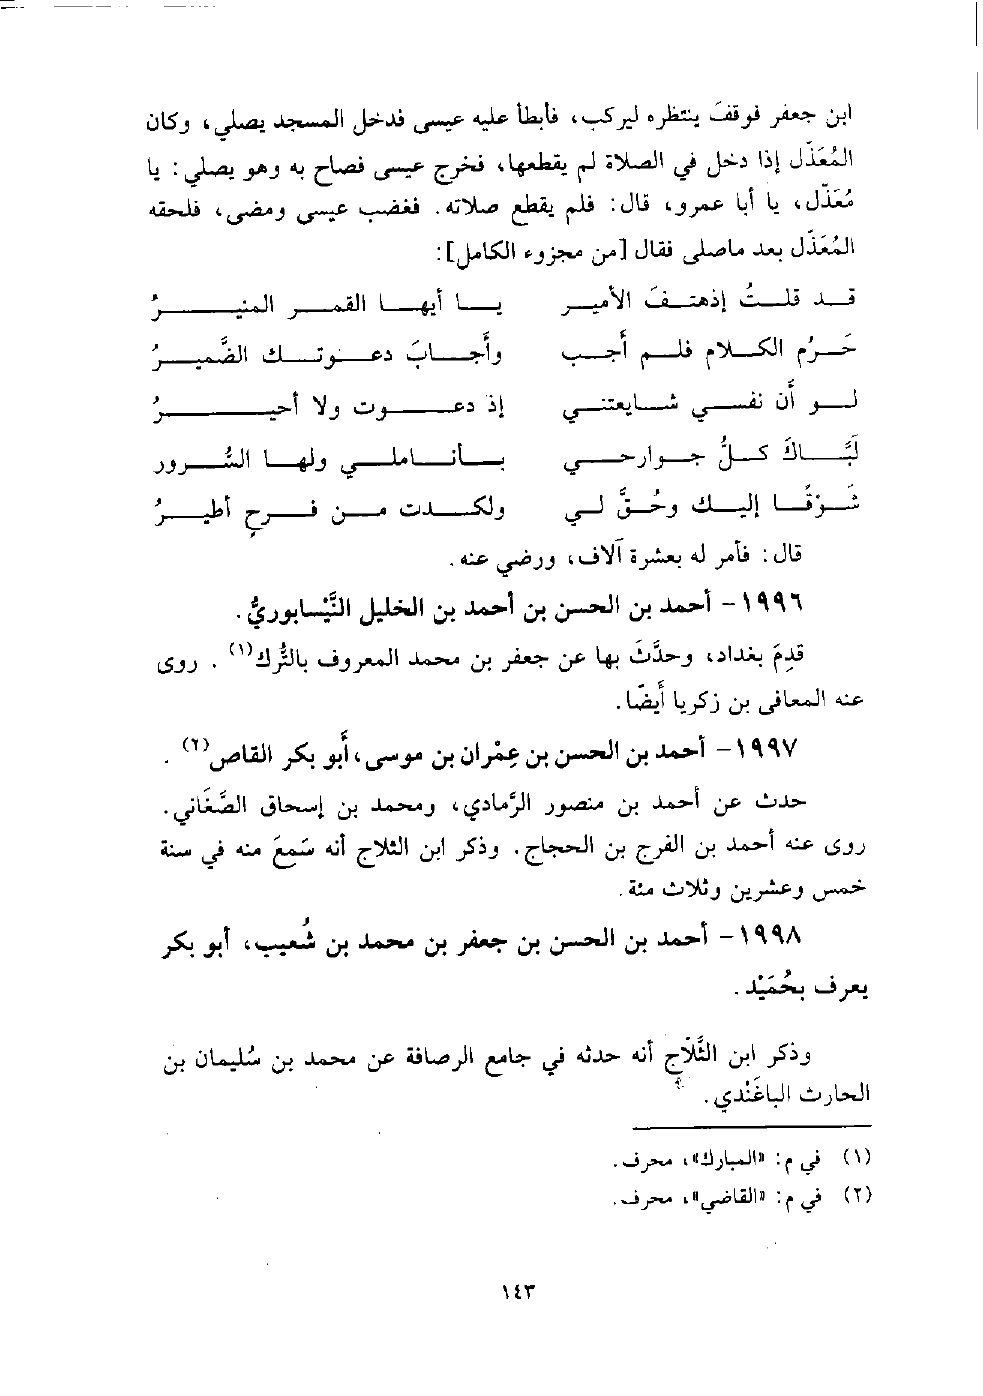 ابن جعفر فوقفَ ينتظره ليركب، فأبطأ عليه عيسى فدخل المسجد يصلي، وكان
المُعَذَّل إذا دخل في الصلاة لم يقطعها، فخرج عيسى فصاح به وهو يصلي: يا
مُعَذَّل، يا أبا عمرو، قال: فلم يقطع صلاته. فغضب عيسى ومضى، فلحقه
المُعَذَّل بعد ماصلى فقال [من مجزوء الكامل]:
قد قلتُ إذهتفَ الأمير يا أيها القمر المنيرُ
حَرُم الكلام فلم أُجب وأجابَ دعوتك الضَّميرُ
لو أن نفسي شايعتني إذ دعوت ولا أحيرُ
لَبَّاكَ كلُّ جوارحي بأناملي ولها السُّرور
شَوْقًا إليك وحُقَّ لي ولكدت من فرحٍ أطيرُ
قال: فأمر له بعشرة آلاف، ورضي عنه.
١٩٩٦- أحمد بن الحسن بن أحمد بن الخليل النَّيْسابوريُّ.
قدِمَ بغداد، وحدَّثَ بها عن جعفر بن محمد المعروف بالتُّرك(١). روى
عنه المعافى بن زكريا أيضًا.
١٩٩٧- أحمد بن الحسن بن عِمْران بن موسى، أبو بكر القاص(٢).
حدث عن أحمد بن منصور الرَّمادي، ومحمد بن إسحاق الصَّغَاني.
روى عنه أحمد بن الفرج بن الحجاج. وذكر ابن الثلاج أنه سَمِعَ منه في سنة
خمس وعشرين وثلاث مئة.
١٩٩٨- أحمد بن الحسن بن جعفر بن محمد بن شُعيب، أبو بكر
يعرف بحُمَيْد.
وذكر ابن الثَّلاج أنه حدثه في جامع الرصافة عن محمد بن سُليمان بن
الحارث الباغَنْدي.
(١) في م: «المبارك»، محرف.
(٢) في م: «القاضي»، محرف.
١٤٣